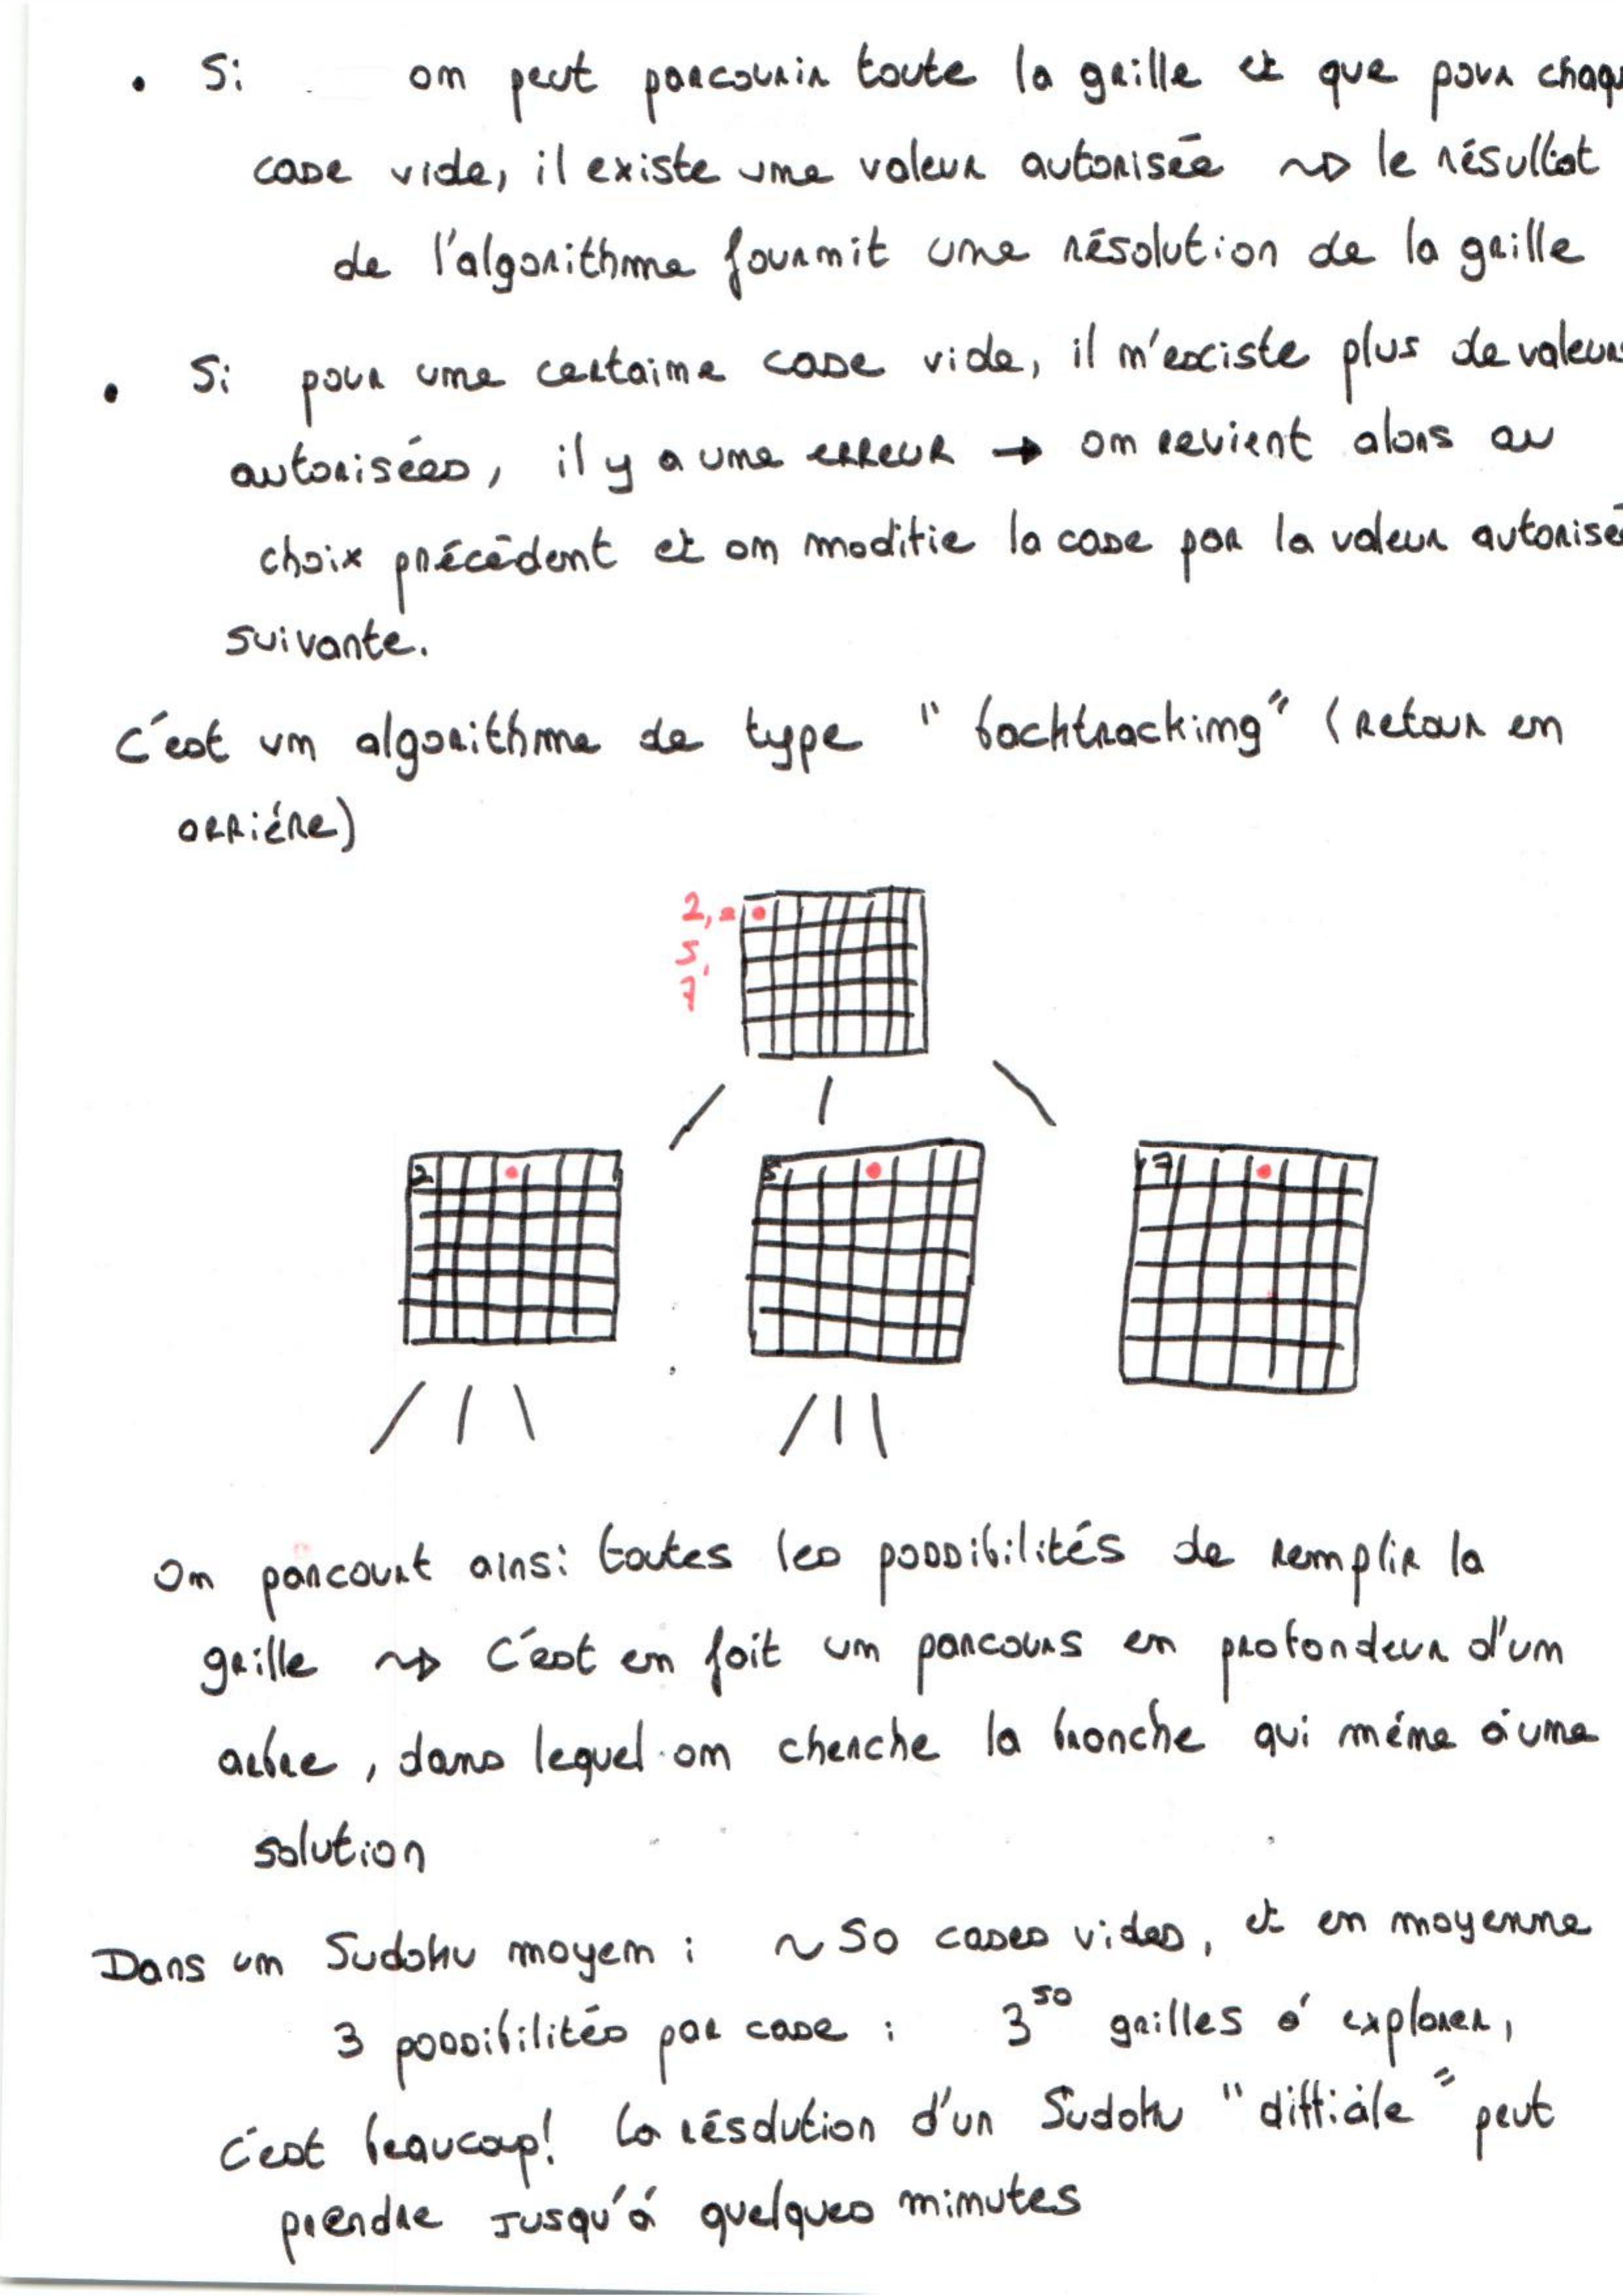 • Si on peut parcourir toute la grille et que pour chaqu
case vide, il existe une valeur autorisée ~> le résultat
de l'algorithme fournit une résolution de la grille
• Si pour une certaine case vide, il n'existe plus de valeurs
autorisées, il y a une erreur → on revient alors au
choix précédent et on modifie la case par la valeur autorisé
suivante.
C'est un algorithme de type "backtracking" (retour en
arriére)
2,
5,
7
2 5 7
On parcourt ainsi toutes les possibilités de remplir la
grille ~> C'est en fait un parcours en profondeur d'un
arbre, dans lequel on cherche la branche qui méne à une
solution
Dans un Sudoku moyen : ~ 50 cases vides, et en moyenne
3 possibilités par case : 3^50 grilles à explorer,
C'est beaucoup! La résolution d'un Sudoku "difficile" peut
prendre jusqu'à quelques minutes